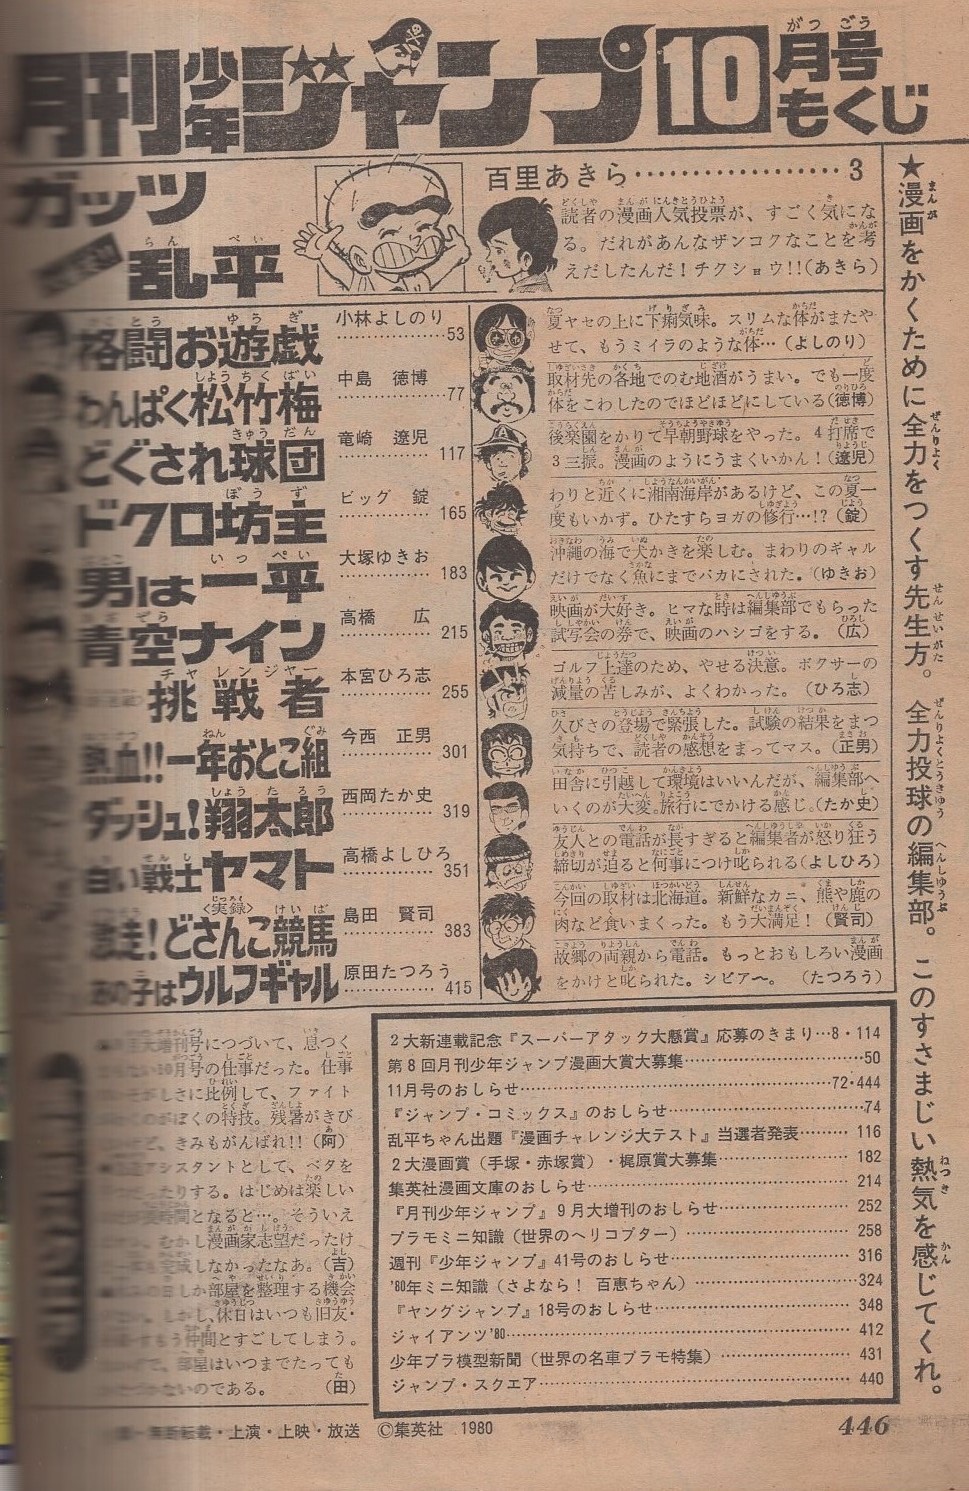 月刊少年ジャンプ10月号もくじ
ガッツ乱平
百里あきら……………………3
読者の漫画人気投票が、すごく気にな
る。だれがあんなザンコクなことを考
えだしたんだ！チクショウ!!(あきら)
格闘お遊戯 小林よしのり……53
夏ヤセの上に下痢気味。スリムな体がまたや
せて、もうミイラのような体…(よしのり)
わんぱく松竹梅 中島 徳博……77
取材先の各地でのむ地酒がうまい。でも一度
体をこわしたのでほどほどにしている(徳博)
どぐされ球団 竜崎 遼児……117
後楽園をかりて早朝野球をやった。4打席で
3三振。漫画のようにうまくいかん！(遼児)
ドクロ坊主 ビッグ 錠……165
わりと近くに湘南海岸があるけど、この夏一
度もいかず。ひたすらヨガの修行…!?(錠)
男は一平 大塚ゆきお……183
沖縄の海で犬かきを楽しむ。まわりのギャル
だけでなく魚にまでバカにされた。(ゆきお)
青空ナイン 高橋 広……215
映画が大好き。ヒマな時は編集部でもらった
試写会の券で、映画のハシゴをする。(広)
挑戦者 本宮ひろ志……255
ゴルフ上達のため、やせる決意。ボクサーの
減量の苦しみが、よくわかった。(ひろ志)
熱血!!一年おとこ組 今西 正男……301
久びさの登場で緊張した。試験の結果をまつ
気持ちで、読者の感想をまってマス。(正男)
ダッシュ!翔太郎 西岡たか史……319
田舎に引越して環境はいいんだが、編集部へ
いくのが大変。旅行にでかける感じ。(たか史)
白い戦士ヤマト 高橋よしひろ……351
友人との電話が長すぎると編集者が怒り狂う
締切が迫ると何事につけ叱られる(よしひろ)
走!どさんこ競馬〈実録〉 島田 賢司……383
今回の取材は北海道。新鮮なカニ、熊や鹿の
肉など食いまくった。もう大満足！(賢司)
あの子はウルフギャル 原田たつろう……415
故郷の両親から電話。もっとおもしろい漫画
をかけと叱られた。シビア〜。(たつろう)
★漫画をかくために全力をつくす先生方。全力投球の編集部。このすさまじい熱気を感じてくれ。
大増刊号につづいて、息つく
10月号の仕事だった。仕事
しさに比例して、ファイト
がぼくの特技。残暑がきび
ど、きみもがんばれ!!(阿)
アシスタントとして、ベタを
たりする。はじめは楽しい
時間となると…。そういえ
むかし漫画家志望だったけ
完成しなかったなあ。(吉)
しか部屋を整理する機会
し、休日はいつも旧友・
仲間とすごしてしまう。
で、部屋はいつまでたっても
ないのである。(田)
2大新連載記念『スーパーアタック大懸賞』応募のきまり…8・114
第8回月刊少年ジャンプ漫画大賞大募集……50
11月号のおしらせ……72・444
『ジャンプ・コミックス』のおしらせ……74
乱平ちゃん出題『漫画チャレンジ大テスト』当選者発表……116
2大漫画賞（手塚・赤塚賞）・梶原賞大募集……182
集英社漫画文庫のおしらせ……214
『月刊少年ジャンプ』9月大増刊のおしらせ……252
プラモミニ知識（世界のヘリコプター）……258
週刊『少年ジャンプ』41号のおしらせ……316
'80年ミニ知識（さよなら！ 百恵ちゃん）……324
『ヤングジャンプ』18号のおしらせ……348
ジャイアンツ'80……412
少年プラ模型新聞（世界の名車プラモ特集）……431
ジャンプ・スクエア……440
無断転載・上演・上映・放送 ©集英社 1980
446